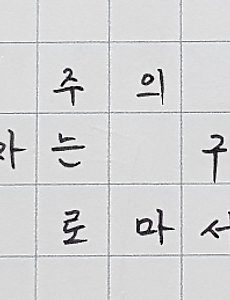 주 의
는 구
로 마 서